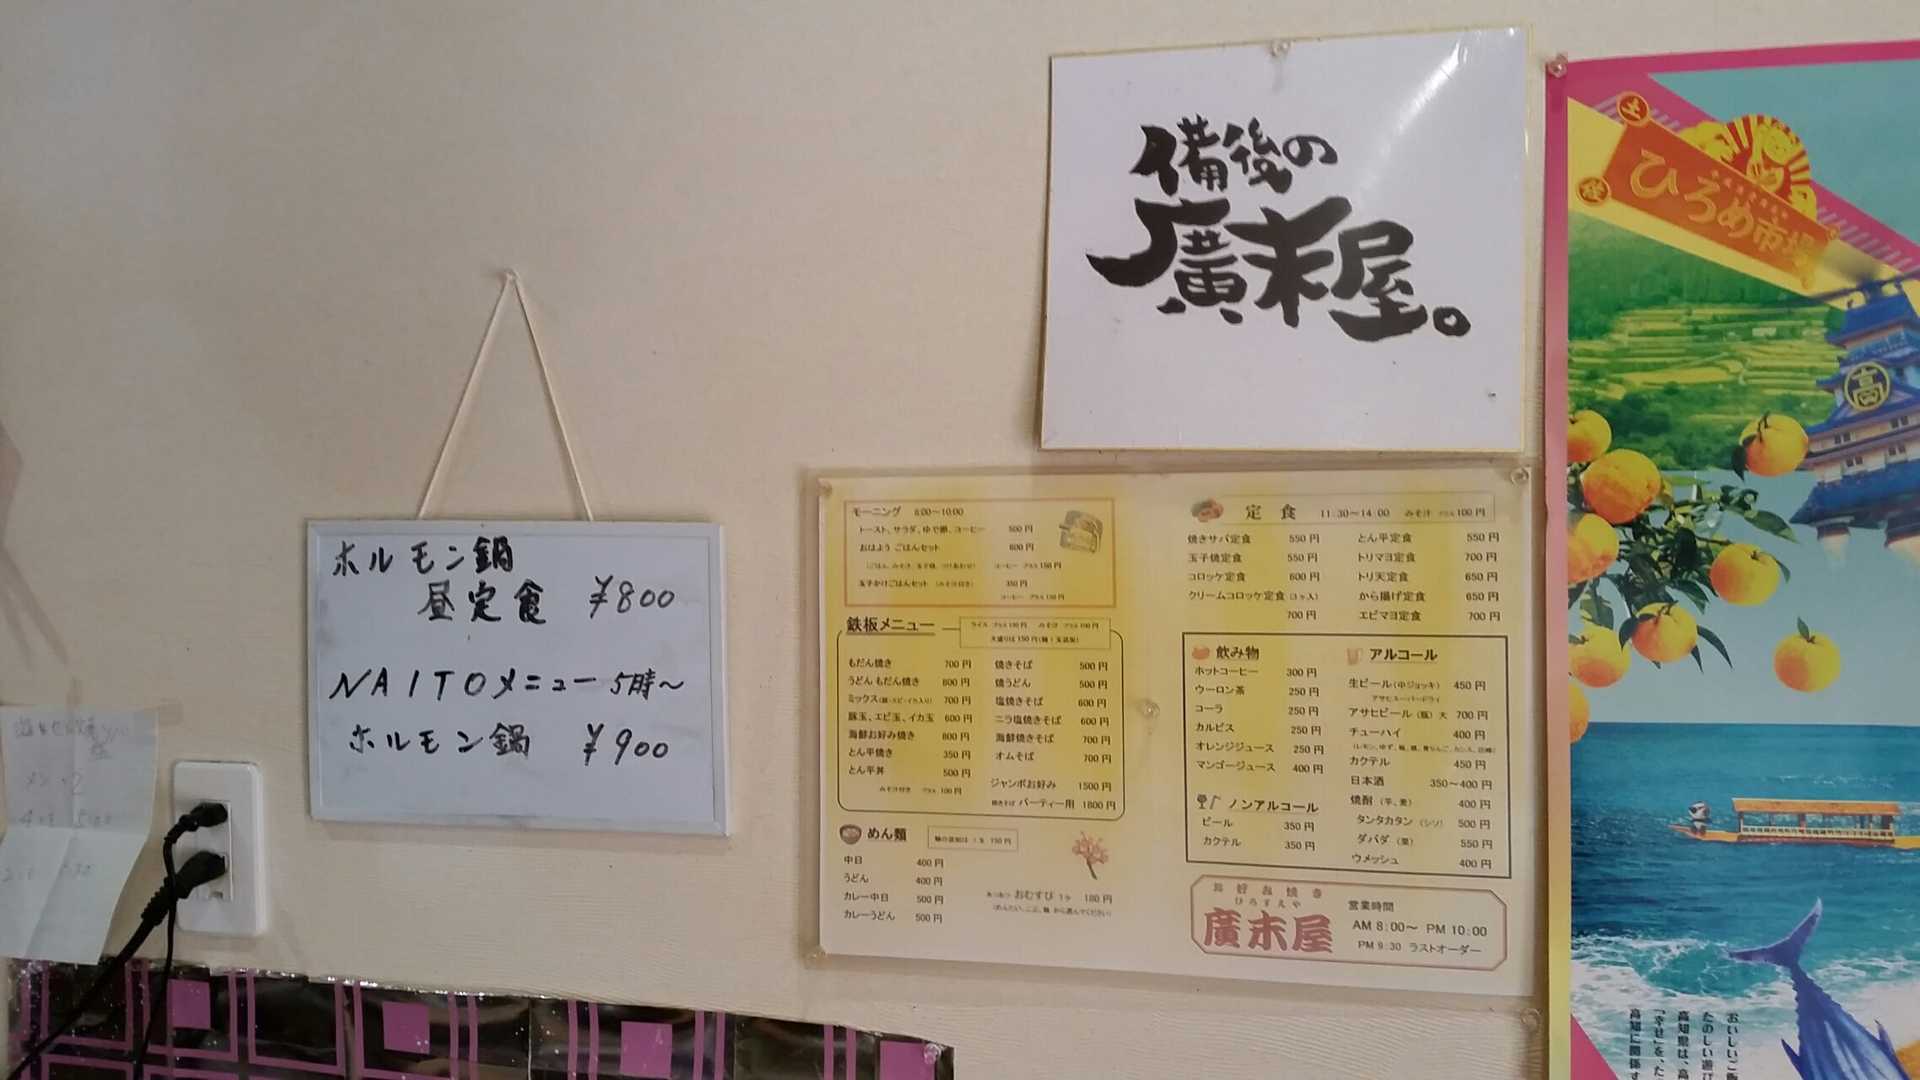 ホルモン鍋
昼定食 ¥800
NAITOメニュー 5時~
ホルモン鍋 ¥900
備後の
廣末屋。
モーニング 8:00~10:00
トースト、サラダ、ゆで卵、コーヒー 500円
おはよう ごはんセット 600円
(ごはん、みそ汁、玉子焼、つけあわせ) コーヒー プラス 150円
玉子かけごはんセット (みそ汁付き) 350円
コーヒー プラス 150円
鉄板メニュー
ライス プラス 150円 みそ汁 プラス 100円
大盛りは 150円
もだん焼き 700円
うどん もだん焼き 800円
ミックス 700円
豚玉、エビ玉、イカ玉 600円
海鮮お好み焼き 800円
とん平焼き 350円
とん平丼 500円
みそ汁付き プラス 100円
焼きそば 500円
焼うどん 500円
塩焼きそば 600円
ニラ塩焼きそば 600円
海鮮焼きそば 700円
オムそば 700円
ジャンボお好み 1500円
焼きそば パーティー用 1800円
めん類
中日 400円
うどん 400円
カレー中日 500円
カレーうどん 500円
おむすび 1ケ 180円
定食 11:30~14:00 みそ汁 プラス 100円
焼きサバ定食 550円
玉子焼定食 550円
コロッケ定食 600円
クリームコロッケ定食 (3ヶ入)
700円
とん平定食 550円
トリマヨ定食 700円
トリ天定食 650円
から揚げ定食 650円
エビマヨ定食 700円
飲み物
ホットコーヒー 300円
ウーロン茶 250円
コーラ 250円
カルピス 250円
オレンジジュース 250円
マンゴージュース 400円
ノンアルコール
ビール 350円
カクテル 350円
アルコール
生ビール(中ジョッキ) 450円
アサヒスーパードライ
アサヒビール(瓶)大 700円
チューハイ 400円
カクテル 450円
日本酒 350~400円
焼酎 (芋、麦) 400円
タンタカタン (シソ) 500円
ダバダ (栗) 550円
ウメッシュ 400円
お好み焼き
ひろすえや
廣末屋
営業時間
AM 8:00~ PM 10:00
PM 9:30 ラストオーダー
土
佐
ひろめ市場
高
おいしいご飯
たのしい遊び
高知県は、高
「幸せ」を、た
高知に関係す